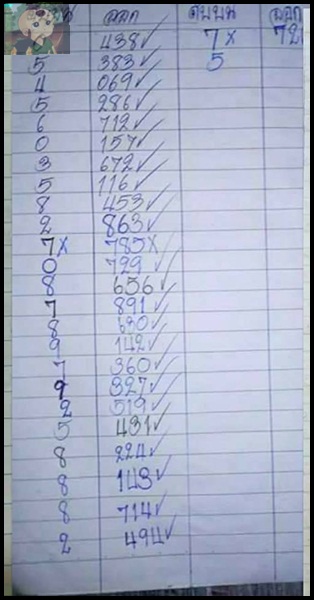 ออก ดับบน ออก
8 438✓ 7x 72
5 383✓ 5
4 069✓
5 286✓
6 712✓
0 157✓
3 672✓
5 116✓
8 453✓
2 863✓
7x 785x
0 729✓
8 656✓
7 891✓
8 630✓
9 142✓
7 360✓
9 327✓
2 519✓
5 431✓
8 224✓
8 143✓
8 714✓
2 494✓